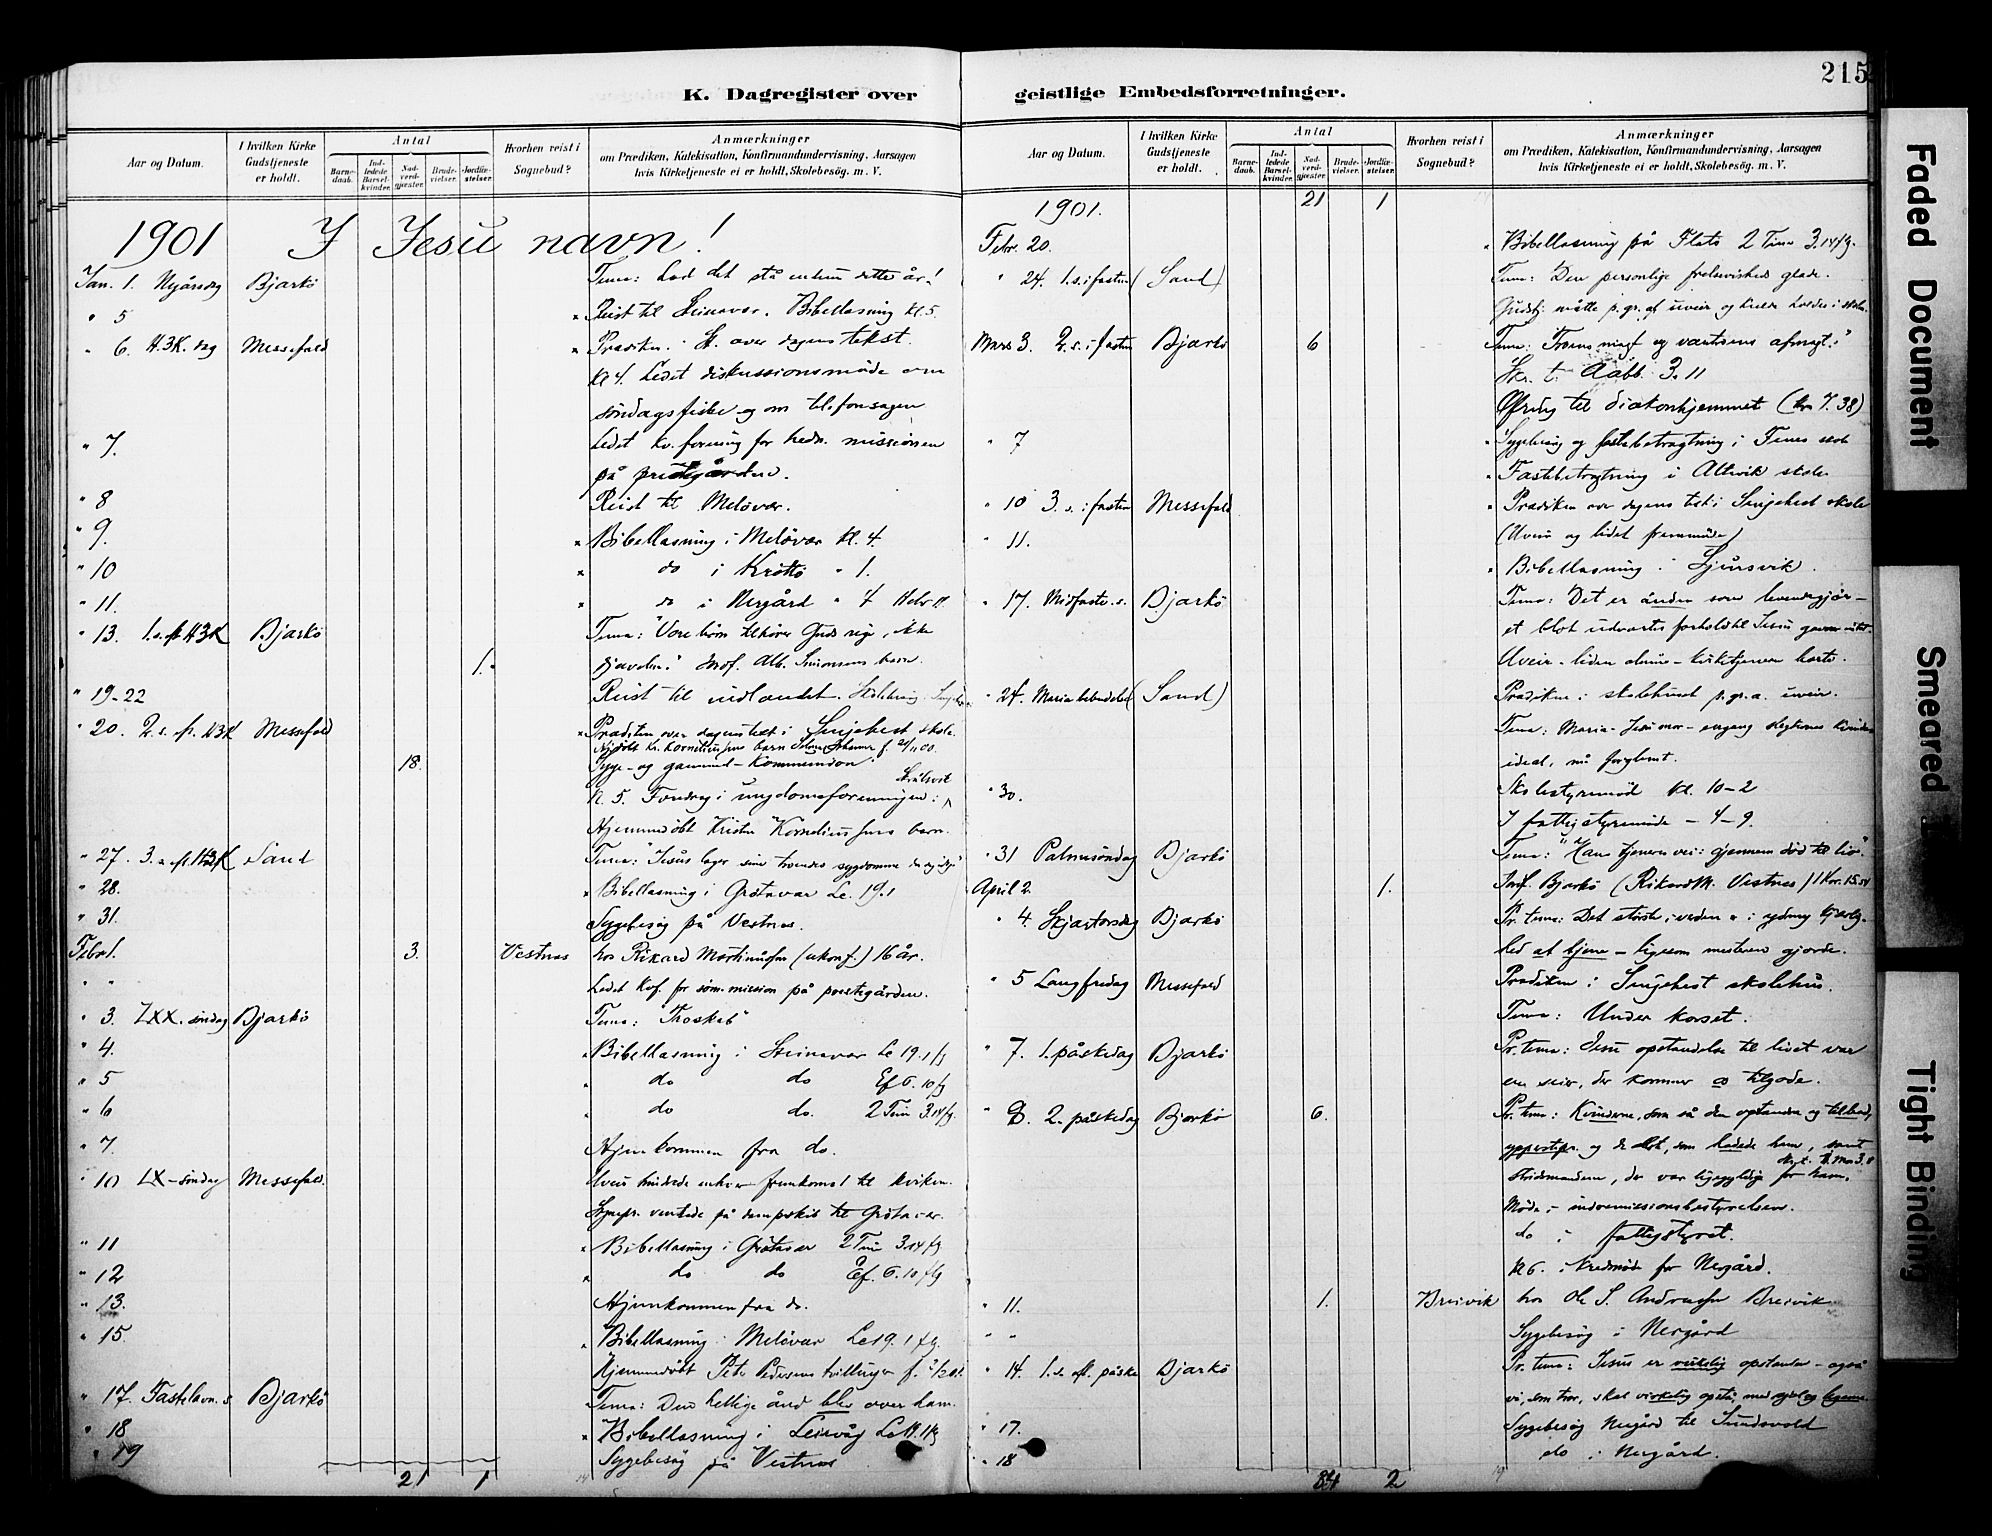 215
K. Dagregister over
geistlige Embedsforretninger.
Aar og Datum.
I hvilken Kirke Gudstjeneste er holdt.
Antal
Barnedaab.
Indledede Barselkvinder.
Nadverdgjæster.
Brudevielser.
Jordfæstelser.
Hvorhen reist i Sognebud?
Anmærkninger
om Prædiken, Katekisation, Konfirmandundervisning, Aarsagen
hvis Kirketjeneste ei er holdt, Skolebesøg. m. V.
1901 I Jesu navn!
Jan. 1. Nyårsdag Bjarkö Tema: Lad det stå endnu dette år!
" 5 Reist til Steinavær. Bibellæsning kl. 5.
" 6. H3K. dag Messefald Prædiken over dagens tekst.
kl 4. Ledet diskussionsmöde om
söndagsfiske og om telefonsagen
" 7. Ledet kv. forening for hedn. missionen
på prestegården.
" 8 Reist til Melövær.
" 9. Bibellæsning i Melövær kl. 4.
" 10 do i Kröttö " 1.
" 11. do i Nergård " 4 Hebr 11.
" 13. 1. s. ef. H3K Bjarkö Tema: "Vore börn tilhörer Guds rige, ikke
1. djævelen." Jordf. Alb. Simonsens barn.
" 19-22 Reist til indlandet.
" 20. 2. s. ef. H3K Messefald Prædiken over dagens tekst i Senjehest skole.
18. Syge- og gammel-kommunion.
Kl. 5. Foredrag i ungdomsforeningen i Skrålsvik
Hjemmedöbt Krist. Korneliussens barn.
" 27. 3. s. ef. H3K Sand Tema: "Jesus tager sine troendes sygdomme
" 28. Bibellæsning i Grötavær Lc. 19.1
" 31. Sygebesög på Vestnes.
Febr 1. 3. Vestnes hos Rikard Martinussen (ukonf.) 16 år.
" " Ledet kvf. for söm. mission på prestegården.
" 3. LXX. söndag Bjarkö Tema: "Troskab"
" 4. Bibellæsning i Steinavær Lc 19.1 fg
" 5 do do Ef 6.10 fg
" 6 do do. 2 Tim 3.14 fg.
" 7. Hjemkommen fra do.
" 10 LX-söndag Messefald. Uveir hindrede enhver fremkomst til kirken.
Sognepr. ventede på dampskib til Grötavær.
" 11 Bibellæsning i Grötavær 2 Tim 3.14 fg
" 12 do do Ef. 6.10 flg
" 13. Hjemkommen fra do.
" 15 Bibellæsning i Melövær Lc 19.1 flg.
Hjemmedöbt Peter Pedersens tvillinger
" 17. Fastelavn. s. Bjarkö Tema: Den hellige ånd blev over ham.
" 18 Bibellæsning i Leirvåg Lc 11.1 fg
" 19 Sygebesög på Vestnes
21 1
Aar og Datum.
I hvilken Kirke Gudstjeneste er holdt.
Antal
Barnedaab.
Indledede Barselkvinder.
Nadverdgjæster.
Brudevielser.
Jordfæstelser.
Hvorhen reist i Sognebud?
Anmærkninger
om Prædiken, Katekisation, Konfirmandundervisning, Aarsagen
hvis Kirketjeneste ei er holdt, Skolebesøg. m. V.
1901. 21 1
Febr. 20. Bibellæsning på Flatö 2 Tim 3.14 fg.
" 24. 1. s. i fasten (Sand) Tema: Den personlige frelsevisheds glæde.
Gudstj. måtte p. gr. af uveir og kulde holdes i skolen.
Mars 3. 2. s. i fasten Bjarkö 6 Tema: "Troens magt og vantroens afmagt."
Skr. t. Åbb. 3.11
Ofring til diakonhjemmet (kr 7.38)
" 7 Sygebesög og fastebetragtning i Fenes skole
Fastebetragtning i Altevik skole
" 10 3. s. i fasten Messefald Prædiken over dagens tekst i Senjehest skole
(Uveir og lidet fremmöde)
" 11. Bibellæsning i
" 17. Midfaste. s. Bjarkö Tema: Det er ånden som levendegjör –
et blot udvortes forhold til Jesus gavner intet.
Uveir – liden almue – kirketjeneren borte.
" 24. Mariæ bebudelse (Sand) Prædiken i skolehuset p. gr. a. uveir.
Tema: Maria – Jesu mor – engang slegternes kvinde-
ideal, nu forglemt.
" 30. Skolestyremöde kl. 10-2
I fattigstyremöde – 4-9.
" 31 Palmesöndag Bjarkö Tema: "Hans tjeneres vei: gjennem död til liv".
April 2. 1. Jordf. Bjarkö (Rikard M. Vestnes) 1 Kor. 15.54
" 4. Skjærtorsdag Bjarkö Pr. tema: Det störste i verden er i ydmyg kjærlig-
hed at tjene – ligesom mesteren gjorde.
" 5 Langfredag Messefald Prædiken i Senjehest skolehus.
Tema: Under korset.
" 7. 1. påskedag Bjarkö Pr. tema: Jesu opstandelse til livet var
en seier, der kommer os tilgode.
" 8. 2. påskedag Bjarkö 6. Pr. tema: Kvinderne, som så den opstandne og tilbad,
ypperstepr. og de ældste, som hadede ham, samt
stridsmændene, der var ligegyldige for ham.
Möde i indremissionsbestyrelsen.
do i fattigstyret.
Kl 6. i kredsmöde for Nergård.
" 11. 1. Breivik hos Ole S. Andreassen Breivik
" " Sygebesög i Nergård
" 14. 1. s. ef. påske Bjarkö Pr. tema: Jesus er virkelig opstanden – også
vi, som tror, skal virkelig opstå, med sjæl og legeme.
" 17. Sygebesög Nergård til Sundsvold
" 18 do i Nergård.
34 2
Faded Document
Smeared
Tight Binding